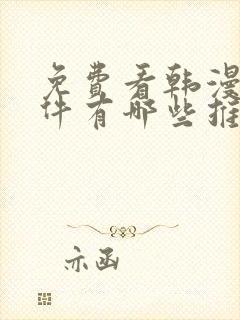 免费看韩漫
件有哪些推
亦函